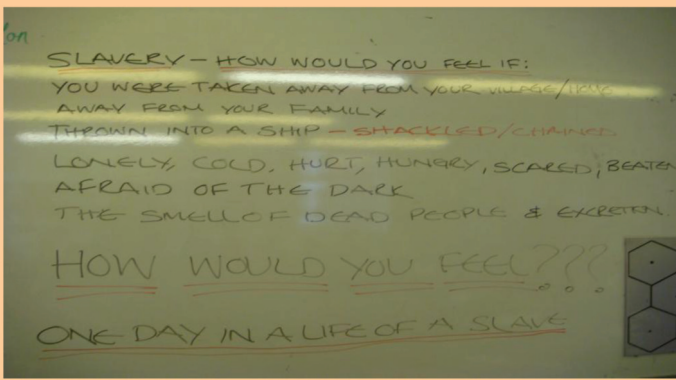 on
SLAVERY – HOW WOULD YOU FEEL IF:
YOU WERE TAKEN AWAY FROM YOUR VILLAGE/
AWAY FROM YOUR FAMILY
THROWN INTO A SHIP – SHACKLED/CHAINED
LONELY, COLD, HURT, HUNGRY, SCARED, BEATEN
AFRAID OF THE DARK
THE SMELL OF DEAD PEOPLE & EXCRETEN.
HOW WOULD YOU FEEL???
ONE DAY IN A LIFE OF A SLAVE